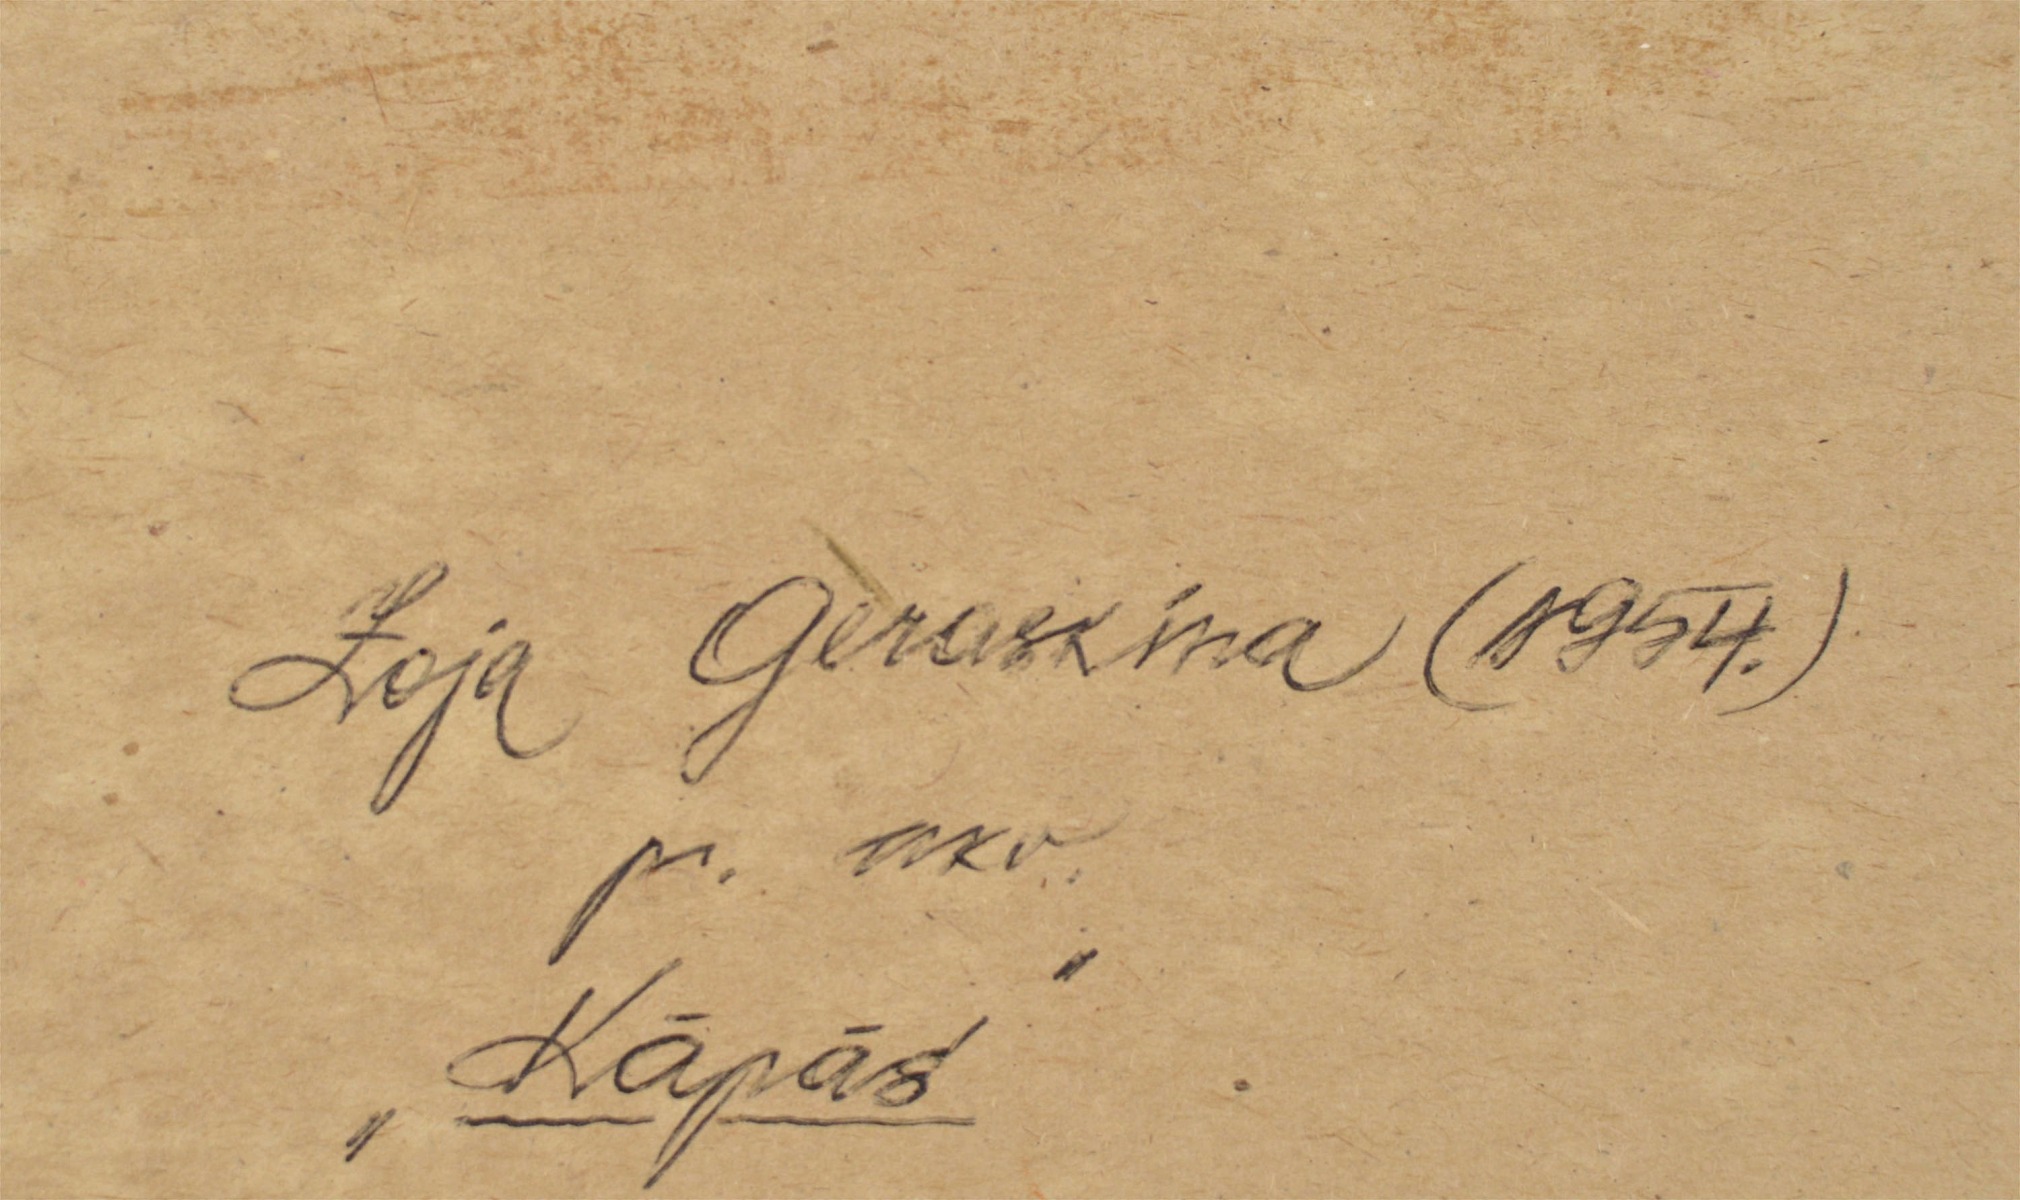 Zoja Geraskina (1954.)
p. akv.
„Kāpās"